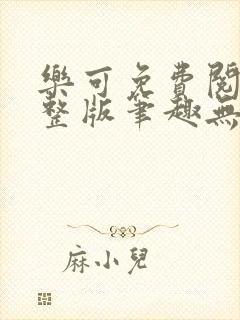 樂可免費閱
整版筆趣無
麻小兒